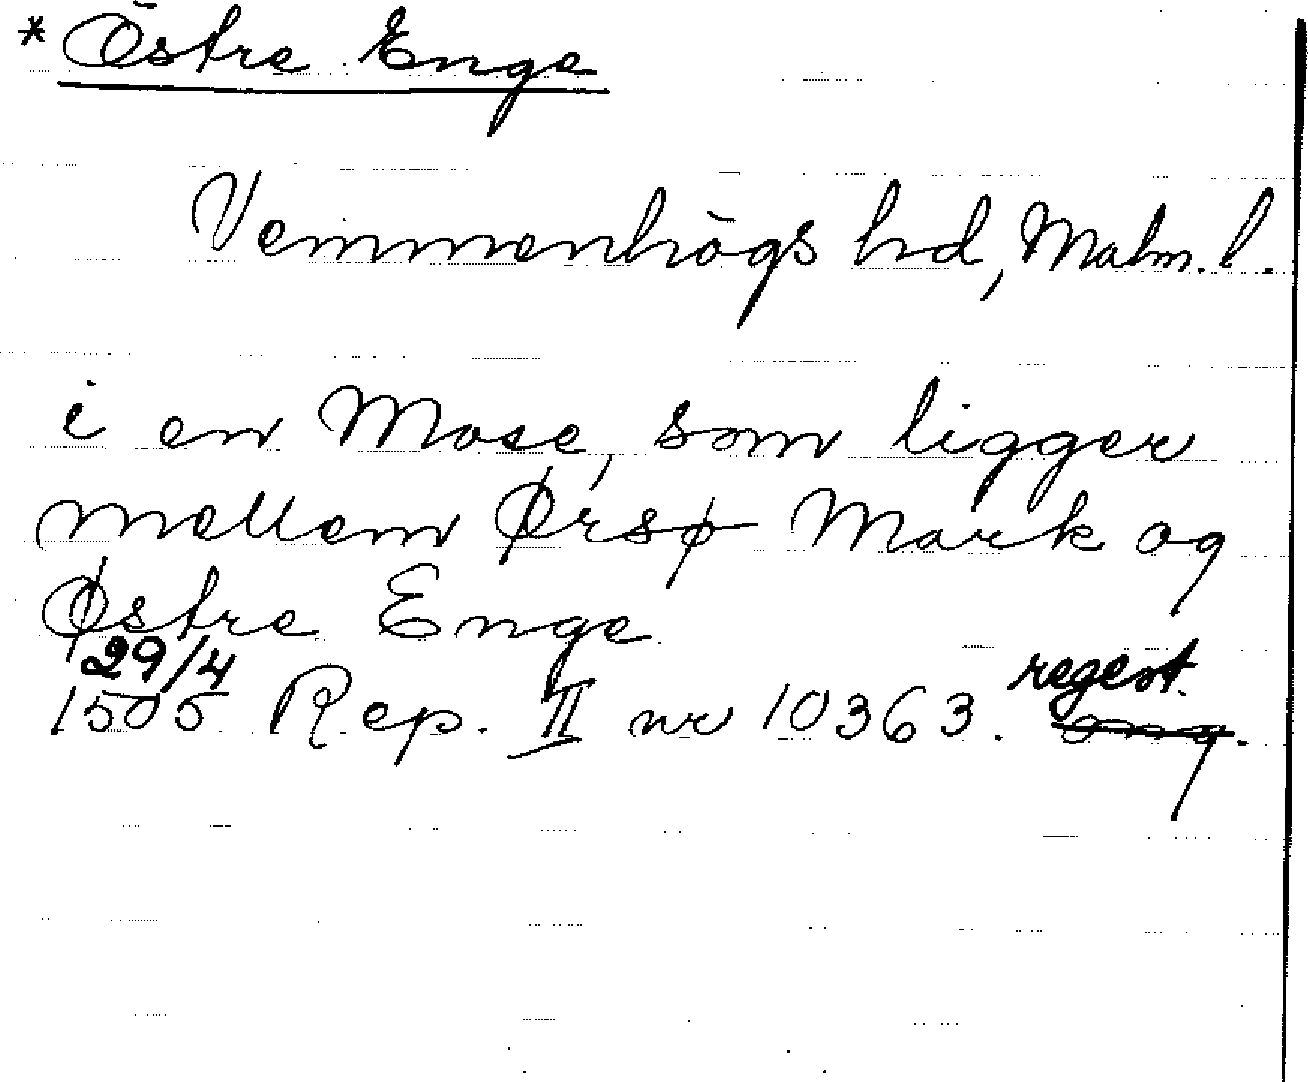 * Östre Enge
Vemmenhögs hd, Malm. l.
i en Mose, som ligger
mellem Ørsø Mark og
Østre Enge
29/4
1505 Rep. II nr 10363. regest.